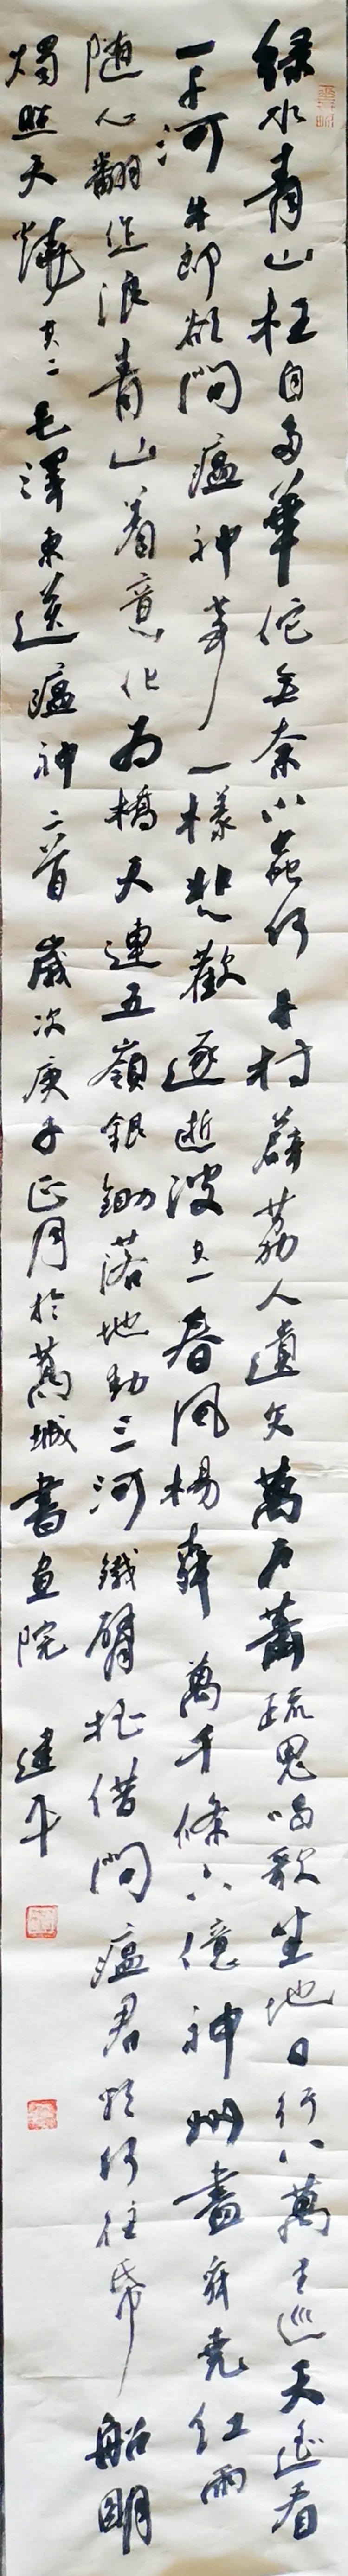 綠水青山枉自多華佗無奈小蟲何千村薜荔人遺矢萬戶蕭疏鬼唱歌坐地日行八萬里巡天遙看
一千河牛郎欲問瘟神事一樣悲歡逐逝波其一春風楊舜萬千條六億神州盡舜堯紅雨
隨心翻作浪青山着意化為橋天連五嶺銀鋤落地動三河鐵臂搖借問瘟君欲何往紙船明
燭照天燒其二毛澤東送瘟神二首歲次庚子正月於萬城書畫院建平